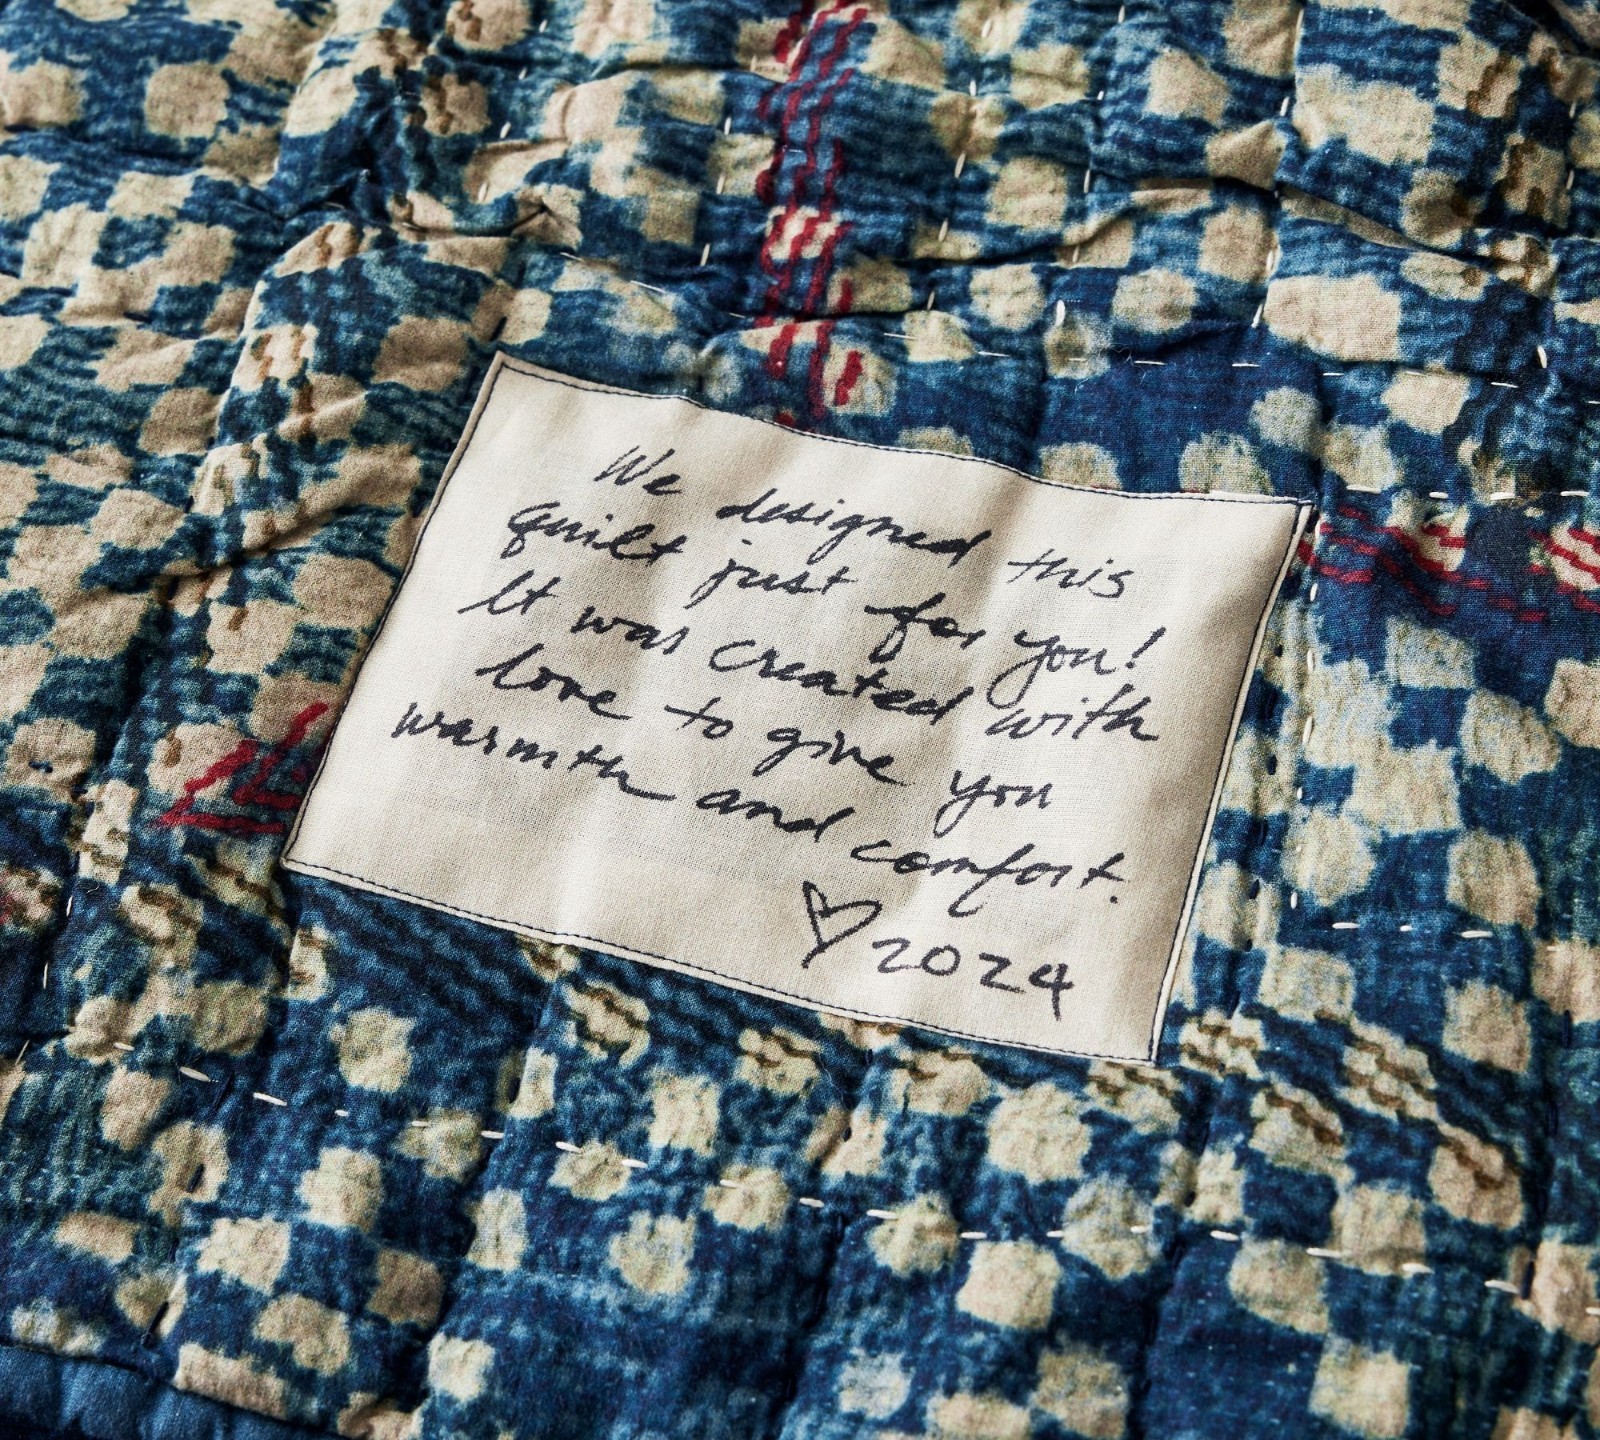 We designed this
quilt just for you!
It was created with
love to give you
warmth and comfort.
♡ 2024